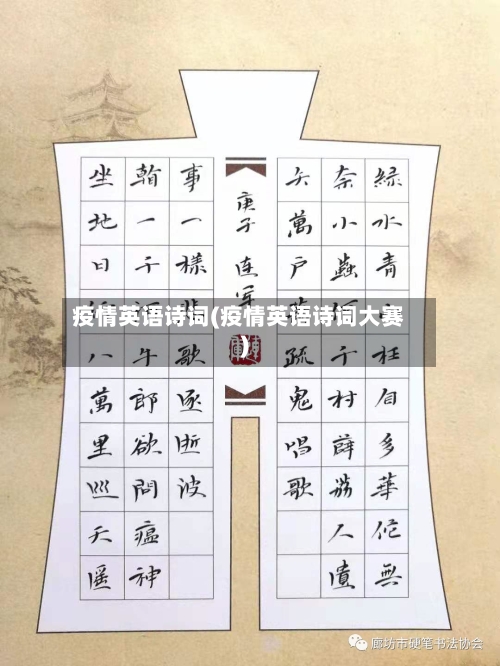 緑水青枉自多華佗無
奈小蟲千村薜荔人遺
矢萬户疏鬼唱歌
庚子 連軍
坐地日八萬里巡天遥
一千牛郎欲問瘟神
事一樣歌逐逝波
疫情英语诗词(疫情英语诗词大赛
)
廊坊市硬笔书法协会